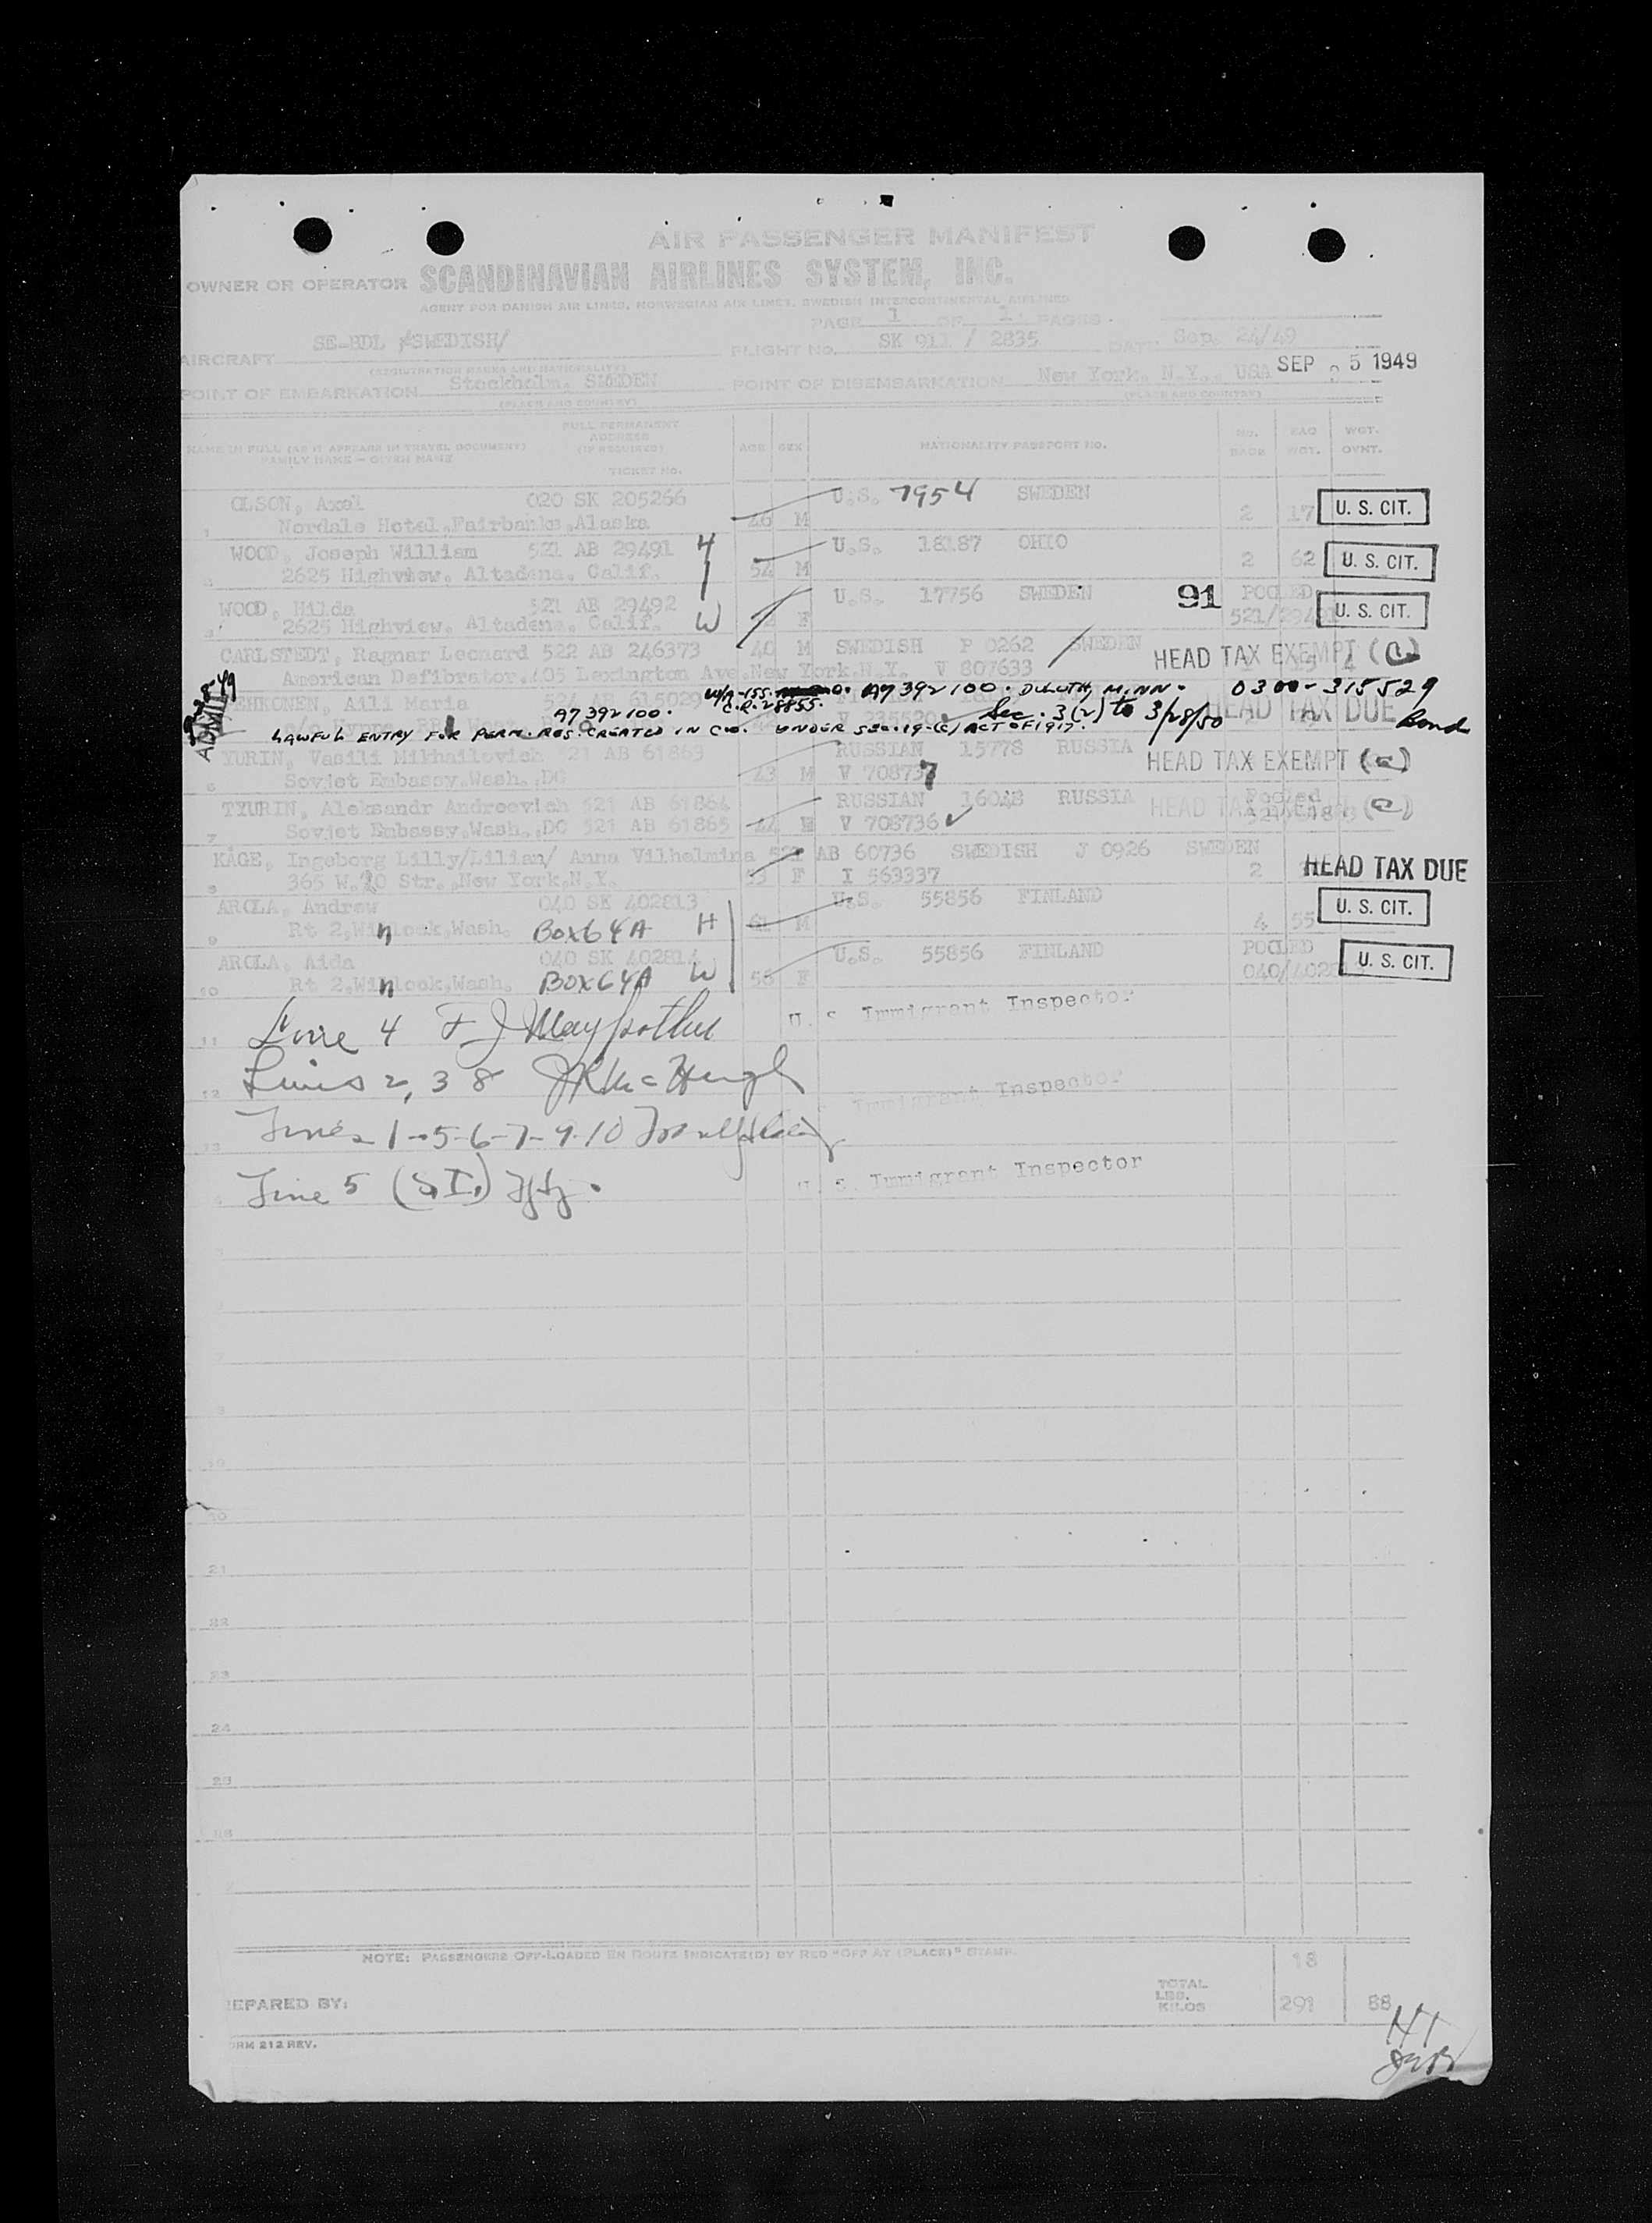 AIR PASSENGER MANIFEST
OWNER OR OPERATOR SCANDINAVIAN AIRLINES SYSTEM, INC.
AGENT FOR DANISH AIR LINES, NORWEGIAN AIR LINES, SWEDISH INTERCONTINENTAL AIRLINES
PAGE 1 OF 1 PAGES
AIRCRAFT SE-BDL /SWEDISH/ FLIGHT NO. SK 911 / 2835 DATE Sep. 24/49
(REGISTRATION MARKS AND NATIONALITY)
SEP 25 1949
POINT OF EMBARKATION Stockholm, SWEDEN POINT OF DISEMBARKATION New York, N.Y., USA
(PLACE AND COUNTRY) (PLACE AND COUNTRY)
NAME IN FULL (AS IT APPEARS IN TRAVEL DOCUMENT) FAMILY NAME — GIVEN NAME FULL PERMANENT ADDRESS (IF REQUIRED) TICKET NO. AGE SEX NATIONALITY PASSPORT NO. NO. BAGS BAG WGT. WGT. OVWT.
OLSON, Axel 020 SK 205266 U.S. 7954 SWEDEN
1 Nordale Hotel,Fairbanks,Alaska 46 M 2 17 U. S. CIT.
WOOD, Joseph William 521 AB 29491 H U.S. 18187 OHIO
2625 Highview. Altadena. Calif. 54 M 2 62 U. S. CIT.
WOOD, Hilda 521 AB 29492 U.S. 17756 SWEDEN 91 POOLED
2625 Highview. Altadena. Calif. W F 521/29491 U. S. CIT.
CARLSTEDT, Ragnar Leonard 522 AB 246373 40 M SWEDISH P 0262 SWEDEN HEAD TAX EXEMPT (C)
American Defibrator.405 Lexington Ave.New York.N.Y. V 807633
LEHKONEN, Aili Maria 521 AB 615029 W/A-155. A7 392 100. DULUTH, MINN. 0300-315529
C.R. 28855.
A7 392 100. V 235520 Sec. 3(2) to 3/28/50 HEAD TAX DUE Bond
LAWFUL ENTRY FOR PERM. RES. CREATED IN C.O. UNDER SEC. 19-(C) ACT OF 1917.
ADMITTED
YURIN, Vasili Mikhailovich 521 AB 61863 RUSSIAN 15778 RUSSIA HEAD TAX EXEMPT (C)
6 Sovjet Embassy.Wash.,DC 43 M V 708737
TXURIN, Aleksandr Andreevich 521 AB 61864 RUSSIAN 16048 RUSSIA Pooled
7 Sovjet Embassy,Wash.,DC 521 AB 61865 44 M V 708736 HEAD TAX EXEMPT (C)
KÅGE, Ingeborg Lilly/Lilian/ Anna Vilhelmina 521 AB 60736 SWEDISH J 0926 SWEDEN
8 365 W.20 Str.,New York,N.Y. 53 F I 563337 2 HEAD TAX DUE
AROLA, Andrew 040 SK 402813 U.S. 55856 FINLAND
9 Rt 2,Winlock,Wash. BOX 64A H 61 M 4 55 U. S. CIT.
AROLA, Aida 040 SK 402814 U.S. 55856 FINLAND POOLED
10 Rt 2,Winlock,Wash. BOX 64A W 56 F 040/402813 U. S. CIT.
11 Line 4 U. S. Immigrant Inspector
12 Lines 2, 3 8 J R McHugh Immigrant Inspector
13 Lines 1-5-6-7-9-10
Line 5 (S.I.) U. S. Immigrant Inspector
19
20
21
22
23
24
25
26
NOTE: PASSENGERS OFF-LOADED EN ROUTE INDICATE(D) BY RED "OFF AT (PLACE)" STAMP.
18
TOTAL LBS. KILOS 291 88
EPARED BY:
RM 212 REV.